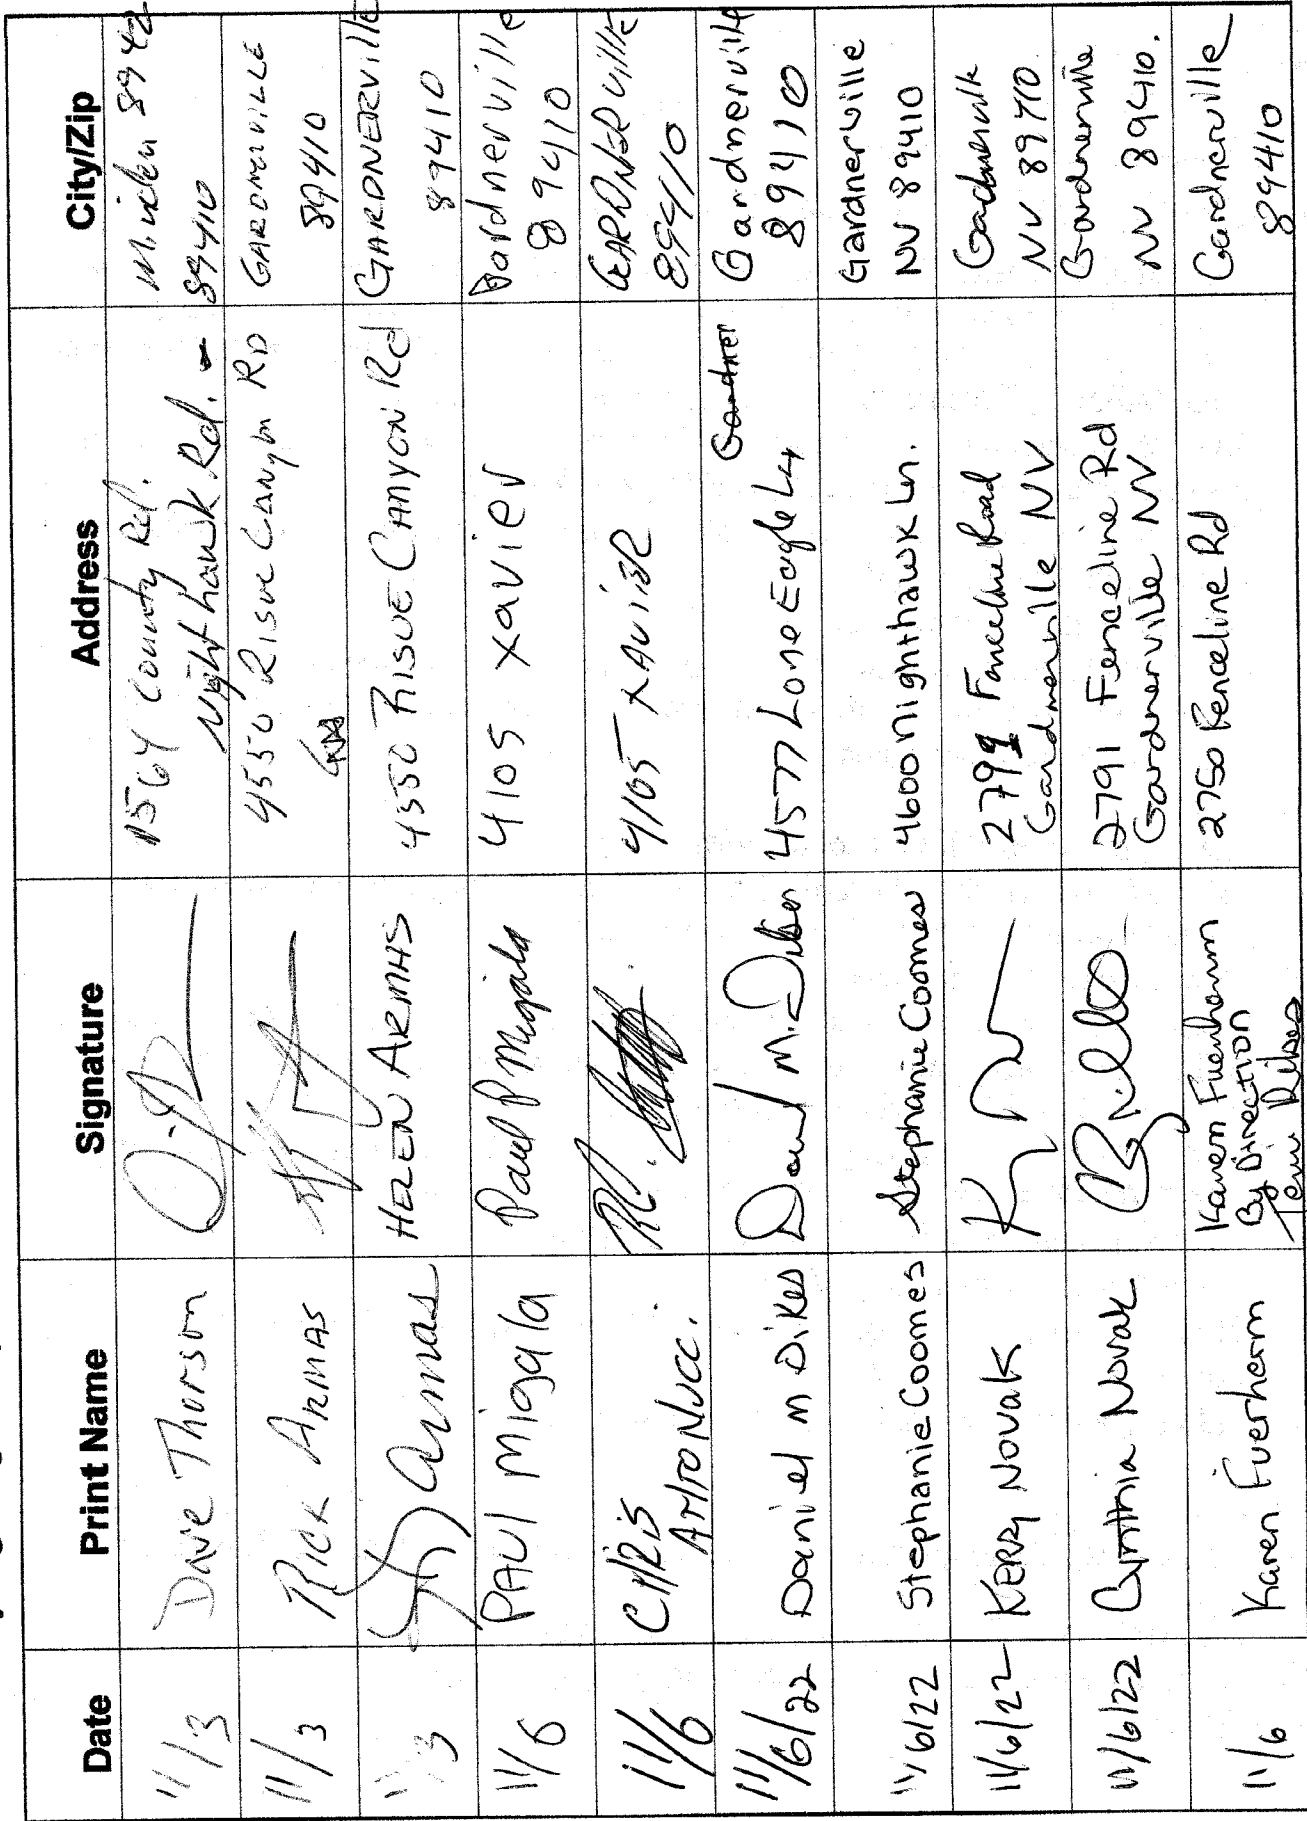 Date Print Name Signature Address City/Zip
11/3 Dave Thorson 1564 County Rd. Minden 8942
Nighthawk Rd. - 89410
11/3 Rick Armas 4550 Risue Canyn Rd GARDNERVILLE
89410
11/3 Armas HELEN ARMAS 4550 RISUE CANYON Rd GARDNERVille
89410
11/6 PAUl Migala Paul P Migala 4105 Xavier Gardnerville
89410
11/6 CHRIS 4105 XAVIER GARDNERVille
ANTONUCC. 89410
11/6/22 Daniel M Dikes 4577 Lone Eagle Ln Gardner Gardnerville
89410
11/6/22 Stephanie Coomes Stephanie Coomes 4600 Nighthawk Ln. Gardnerville
NV 89410
11/6/22 KERRy NOVAK 2791 Fenceline Road Gardnerville
Gardnerville NV NV 89410
11/6/22 Cynthia Novak 2791 Fenceline Rd Gardnerville
Gardnerville NV NV 89410.
11/6 Karen Fuerherm Karen Fuerherm 2750 Fenceline Rd Gardnerville
By Direction 89410